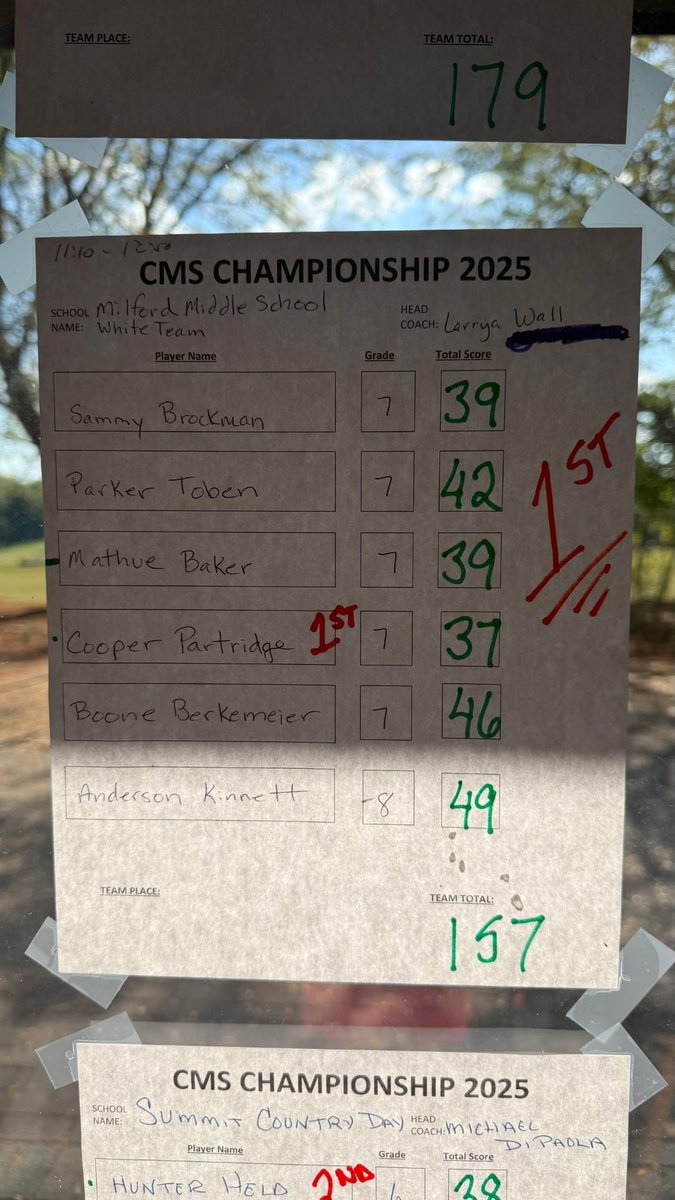 TEAM PLACE: TEAM TOTAL:
179
11:10 - 12:00
CMS CHAMPIONSHIP 2025
SCHOOL NAME: Milford Middle School White Team
HEAD COACH: Larrya Wall
Player Name Grade Total Score
Sammy Brockman 7 39
Parker Toben 7 42
Mathue Baker 7 39
Cooper Partridge 1ST 7 37
Boone Berkemeier 7 46
Anderson Kinnett 8 49
1ST
TEAM PLACE: TEAM TOTAL:
157
CMS CHAMPIONSHIP 2025
SCHOOL NAME: SUMMIT COUNTRY DAY
HEAD COACH: MICHAEL DIPAOLA
Player Name Grade Total Score
HUNTER HELD 2ND 38